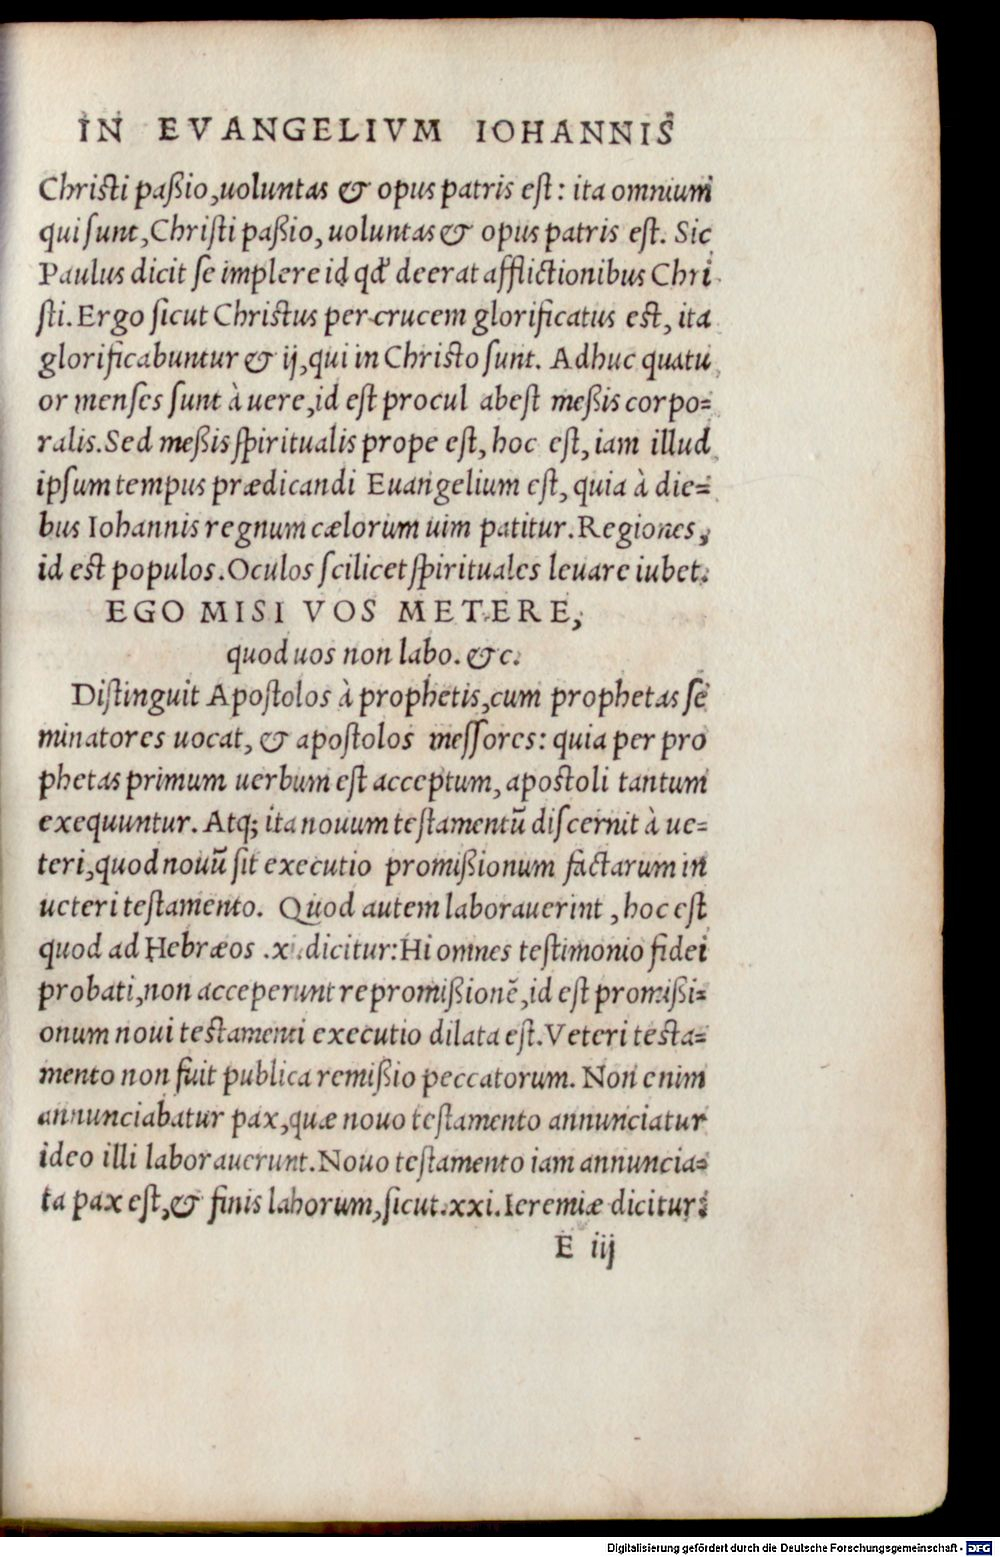 IN EVANGELIVM IOHANNIS
Chriſti paßio,uoluntas & opus patris eſt: ita omnium
qui ſunt,Chriſti paßio, uoluntas & opus patris eſt. Sic
Paulus dicit ſe implere id qđ deerat afflictionibus Chri
ſti. Ergo ſicut Chriſtus per crucem glorificatus eſt, ita
glorificabuntur & ij,qui in Chriſto ſunt. Adhuc quatu
or menſes ſunt à uere,id eſt procul abeſt meßis corpo=
ralis. Sed meßis ſpiritualis prope eſt, hoc eſt, iam illud
ipſum tempus prædicandi Euangelium eſt, quia à die=
bus Iohannis regnum cælorum uim patitur. Regiones,
id eſt populos. Oculos ſcilicet ſpirituales leuare iubet.
EGO MISI VOS METERE,
quod uos non labo. &c.
Diſtinguit Apoſtolos à prophetis,cum prophetas ſe
minatores uocat, & apoſtolos meſſores: quia per pro
phetas primum uerbum eſt acceptum, apoſtoli tantum
exequuntur. Atq; ita nouum teſtamentũ diſcernit à ue=
teri,quod nouũ ſit executio promißionum factarum in
ueteri teſtamento. Quod autem laborauerint , hoc eſt
quod ad Hebræos .x .dicitur: Hi omnes teſtimonio fidei
probati,non acceperunt repromißionẽ,id eſt promißi=
onum noui teſtamenti executio dilata eſt. Veteri teſta=
mento non fuit publica remißio peccatorum. Non enim
annunciabatur pax,quæ nouo teſtamento annunciatur
ideo illi laborauerunt. Nouo teſtamento iam annuncia=
ta pax eſt,& finis laborum,ſicut.xxi. Ieremiæ dicitur:
E iij
Digitalisierung gefördert durch die Deutsche Forschungsgemeinschaft - DFG